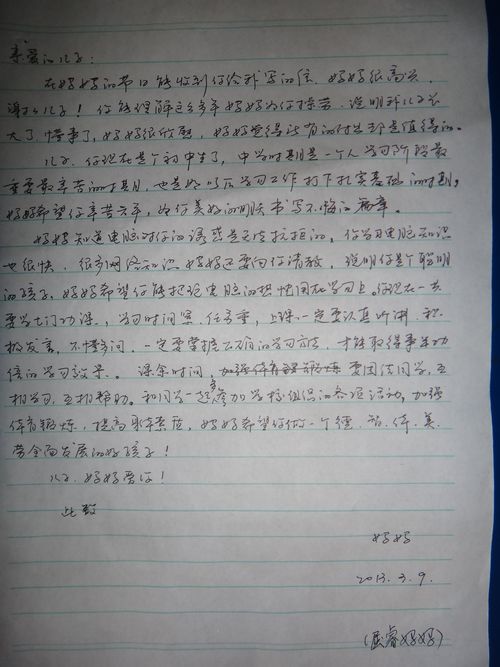 亲爱的儿子：
在妈妈的节日能收到你给我写的信，妈妈很高兴，
谢谢儿子！你能理解这么多年妈妈为你操劳，说明我儿长
大了，懂事了，妈妈很欣慰，妈妈觉得所有的付出都是值得的。
儿子，你现在是个初中生了，中学时期是一个人学习阶段最
重要最辛苦的时期，也是为以后学习工作打下扎实基础的时期，
妈妈希望你辛苦六年，为你美好的明天书写不悔的篇章。
妈妈知道电脑对你的诱惑是无法抗拒的，你学习电脑知识
也很快，很多网络知识妈妈还要向你请教，说明你是个聪明
的孩子，妈妈希望你能把玩电脑的热情用在学习上。你现在一共
要学七门功课，学习时间紧，任务重，上课一定要认真听讲，积
极发言，不懂多问，一定要掌握正确的学习方法，才能取得事半功
倍的学习效果。课余时间，要团结同学，互
相学习，互相帮助。和同学一起多参加学校组织的各项活动，加强
体育锻炼，提高身体素质，妈妈希望你做一个德、智、体、美、
劳全面发展的好孩子！
儿子，妈妈爱你！
此致
妈妈
2013.3.9.
（屈睿妈妈）